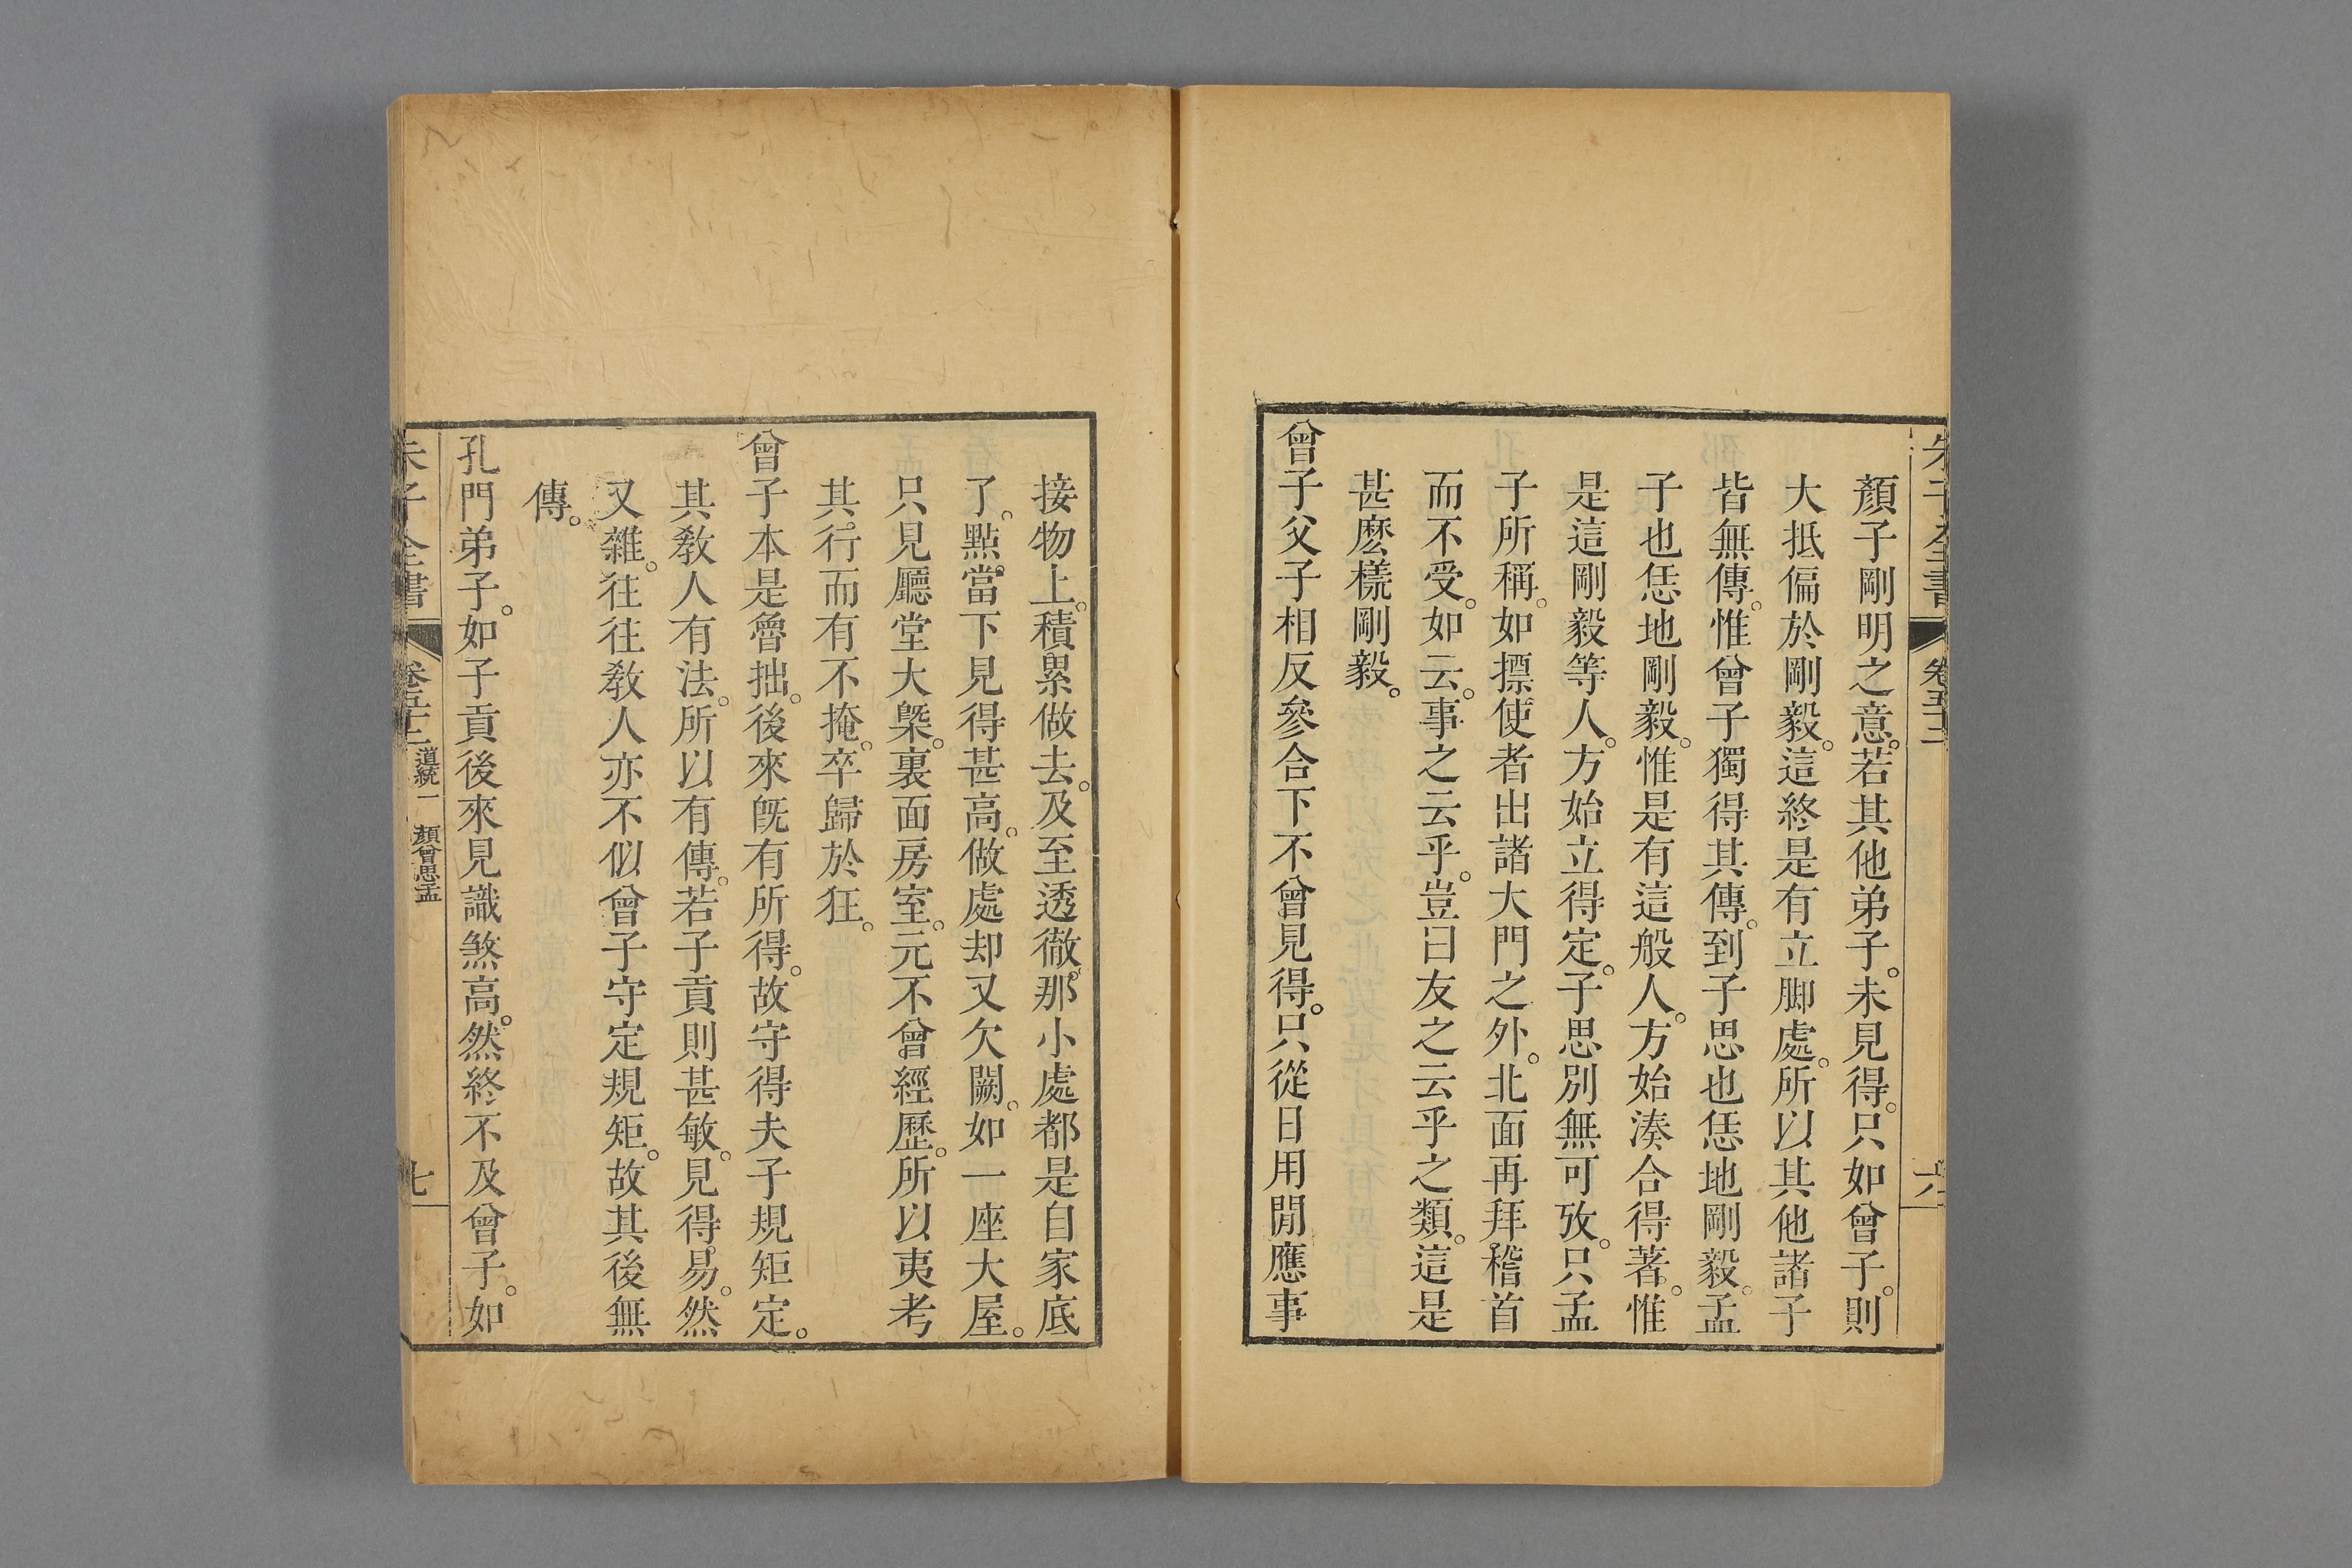 朱子全書 卷五十二 六
顏子剛明之意。若其他弟子。未見得。只如曾子。則
大抵偏於剛毅。這終是有立脚處。所以其他諸子
皆無傳。惟曾子獨得其傳。到子思也恁地剛毅。孟
子也恁地剛毅。惟是有這般人。方始湊合得著。惟
是這剛毅等人。方始立得定。子思別無可攷。只孟
子所稱。如摽使者出諸大門之外。北面再拜稽首
而不受。如云。事之云乎。豈曰友之云乎之類。這是
甚麽樣剛毅。
曾子父子相反參合下不曾見得。只從日用閒應事
接物上。積累做去。及至透徹。那小處都是自家底
了。點當下見得甚高。做處却又欠闕。如一座大屋。
只見廳堂大槩。裏面房室。元不曾經歷。所以夷考
其行而有不掩。卒歸於狂。
曾子本是魯拙。後來旣有所得。故守得夫子規矩定。
其敎人有法。所以有傳。若子貢則甚敏。見得易。然
又雜。往往敎人亦不似曾子守定規矩。故其後無
傳。
孔門弟子。如子貢後來見識煞高。然終不及曾子。如
朱子全書 卷五十二 道統一 顏曾思孟 七